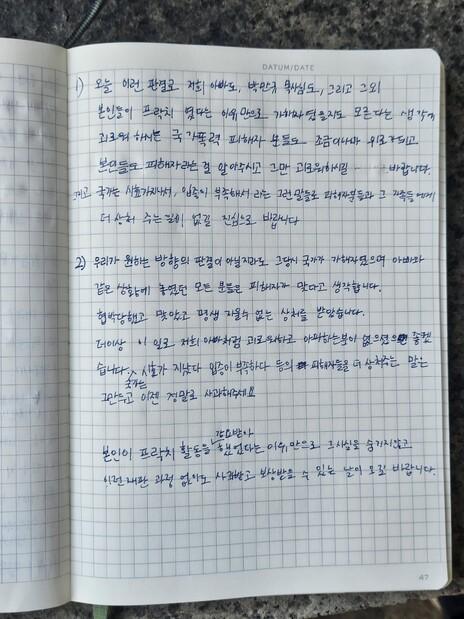 DATUM/DATE
1) 오늘 이런 판결로 저희 아빠도, 박만규 목사님도, 그리고 그외
본인들이 프락치 였다는 이유만으로 가해자였을지도 모른다는 생각에
괴로워 하시는 국가폭력 피해자 분들도 조금이나마 위로가 되고
본인들도 피해자라는걸 알아주시고 그만 괴로워하시길 바랍니다.
그리고 국가는 시효가지나서, 입증이 부족해서 라는 그런말들로 피해자분들과 그 가족들에게
더 상처 주는일이 없길 진심으로 바랍니다
2) 우리가 원하는 방향의 판결이 아닐지라도 그당시 국가가 가해자였으며 아빠와
같은 상황에 놓였던 모든 분들은 피해자가 맞다고 생각합니다.
협박당했고 맞았고 평생 지울수 없는 상처를 받았습니다.
더이상 이 일로 저희 아빠처럼 괴로워하고 아파하는분이 없으면 좋겠
습니다. 국가는 시효가 지났다 입증이 부족하다 등의 피해자들을 더 상처주는 말은
그만두고 이젠 정말로 사과해주세요
본인이 프락치 활동을 강요받아 했었다는 이유만으로 그사실을 숨기지않고
이런재판 과정 없이도 사과받고 보상받을 수 있는 날이 오길 바랍니다.
47